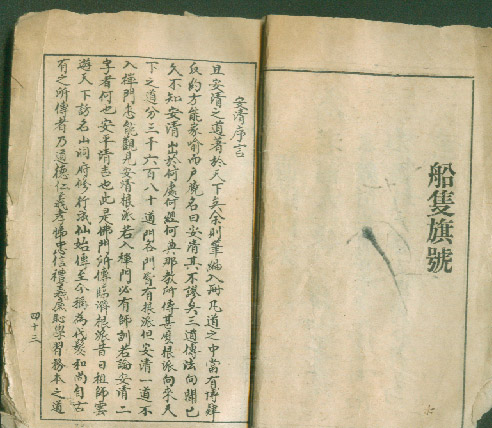 船隻旗號
安清序言
且安清之道著於天下矣余則筆編入冊凡道之中當有傳
約方能家喻而戶曉名曰安清其不謬矣三道傳法向聞已
久不知安清出於何處何經何典那教所傳甚麼根派向來天
下之道分三千六百八十道門各門皆有根派但安清一道不
入禪門怎能觀見安清根派若入禪門必有師訓若論安清二
字者何也安平清吉也此是佛門所傳臨濟根派昔日祖師雲
遊天下訪名山洞府修行成仙始傳至今稱為代髮和尚自古
有之所傳者乃道德仁義孝悌忠信禮義廉恥學習務本之道
四十三